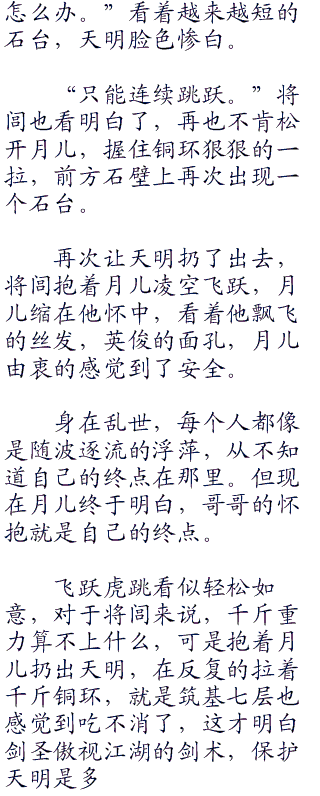 怎么办。”看着越来越短的
石台，天明脸色惨白。
“只能连续跳跃。”将
闾也看明白了，再也不肯松
开月儿，握住铜环狠狠的一
拉，前方石壁上再次出现一
个石台。
再次让天明扔了出去，
将闾抱着月儿凌空飞跃，月
儿缩在他怀中，看着他飘飞
的丝发，英俊的面孔，月儿
由衷的感觉到了安全。
身在乱世，每个人都像
是随波逐流的浮萍，从不知
道自己的终点在那里。但现
在月儿终于明白，哥哥的怀
抱就是自己的终点。
飞跃虎跳看似轻松如
意，对于将闾来说，千斤重
力算不上什么，可是抱着月
儿扔出天明，在反复的拉着
千斤铜环，就是筑基七层也
感觉到吃不消了，这才明白
剑圣傲视江湖的剑术，保护
天明是多